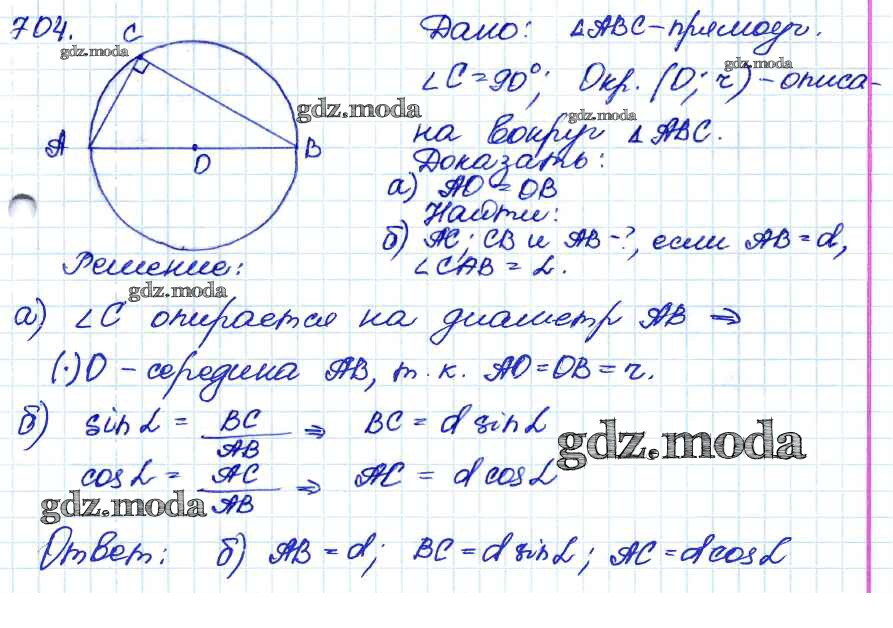 704.
C
A
O
B
Дано: △ABC-прямоуг.
∠C=90°; Окр. (O; r) - описа-
на вокруг △ABC.
Доказать:
а) AO = OB
Найти:
б) AC; CB и AB-?, если AB = d,
∠CAB = α.
Решение:
а) ∠C опирается на диаметр AB ⇒
(·)O - середина AB, т.к. AO=OB=r.
б) sin α = BC/AB ⇒ BC = d sin α
cos α = AC/AB ⇒ AC = d cos α
Ответ: б) AB = d; BC = d sin α; AC = d cos α
gdz.moda
gdz.moda
gdz.moda
gdz.moda
gdz.moda
gdz.moda
gdz.moda